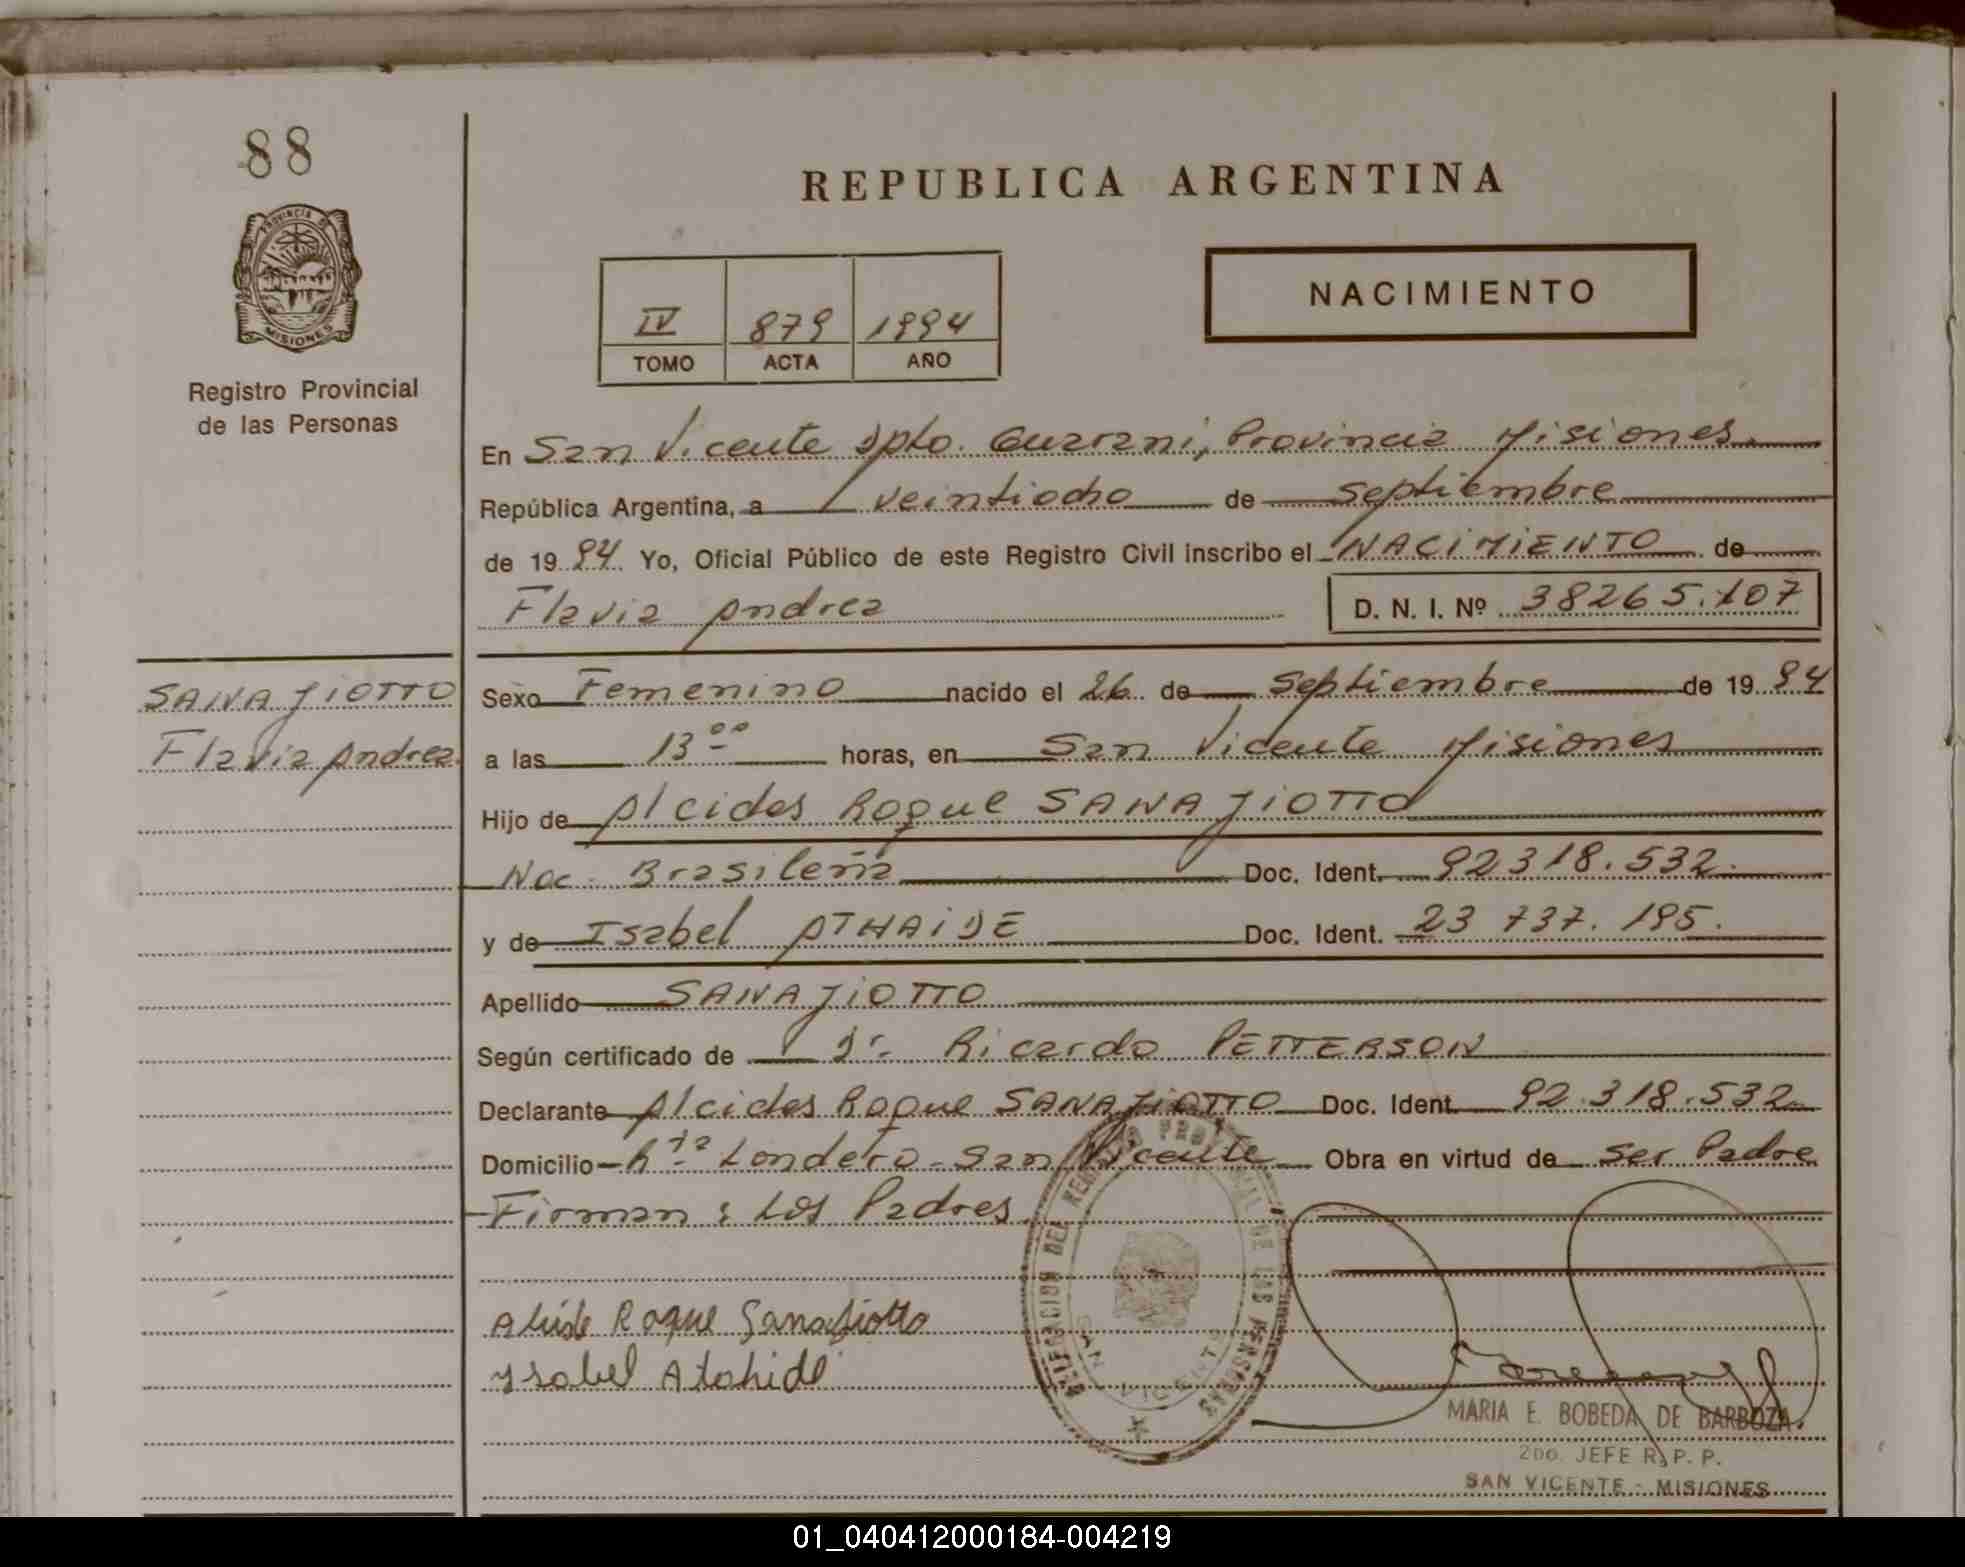 88
PROVINCIA DE
MISIONES
Registro Provincial
de las Personas
REPUBLICA ARGENTINA
IV 879 1994
TOMO ACTA AÑO
NACIMIENTO
En San Vicente Dpto. Guarani, Provincia Misiones
República Argentina, a veintiocho de septiembre
de 19 94 Yo, Oficial Público de este Registro Civil inscribo el NACIMIENTO de
Flavia Andrea D. N. I. Nº 38265.107
SANAGIOTTO
Flavia Andrea
Sexo Femenino nacido el 26 de Septiembre de 19 94
a las 13 00 horas, en San Vicente Misiones
Hijo de Alcides Roque SANAGIOTTO
Nac. Brasileña Doc. Ident. 92318.532.
y de Isabel ATHAIDE Doc. Ident. 23 737. 195.
Apellido SANAGIOTTO
Según certificado de Dr. Ricardo PETTERSON
Declarante Alcides Roque SANAGIOTTO Doc. Ident. 92.318.532
Domicilio Londero - San Vicente Obra en virtud de ser Padre
Firman: Los Padres
Roque Sanagiotto
Ysabel Atahide
DEL REGISTRO PROVINCIAL DE LAS PERSONAS
SAN VICENTE
MARIA E. BOBEDA DE BARBOZA
2DO. JEFE R. P. P.
SAN VICENTE - MISIONES
01_040412000184-004219